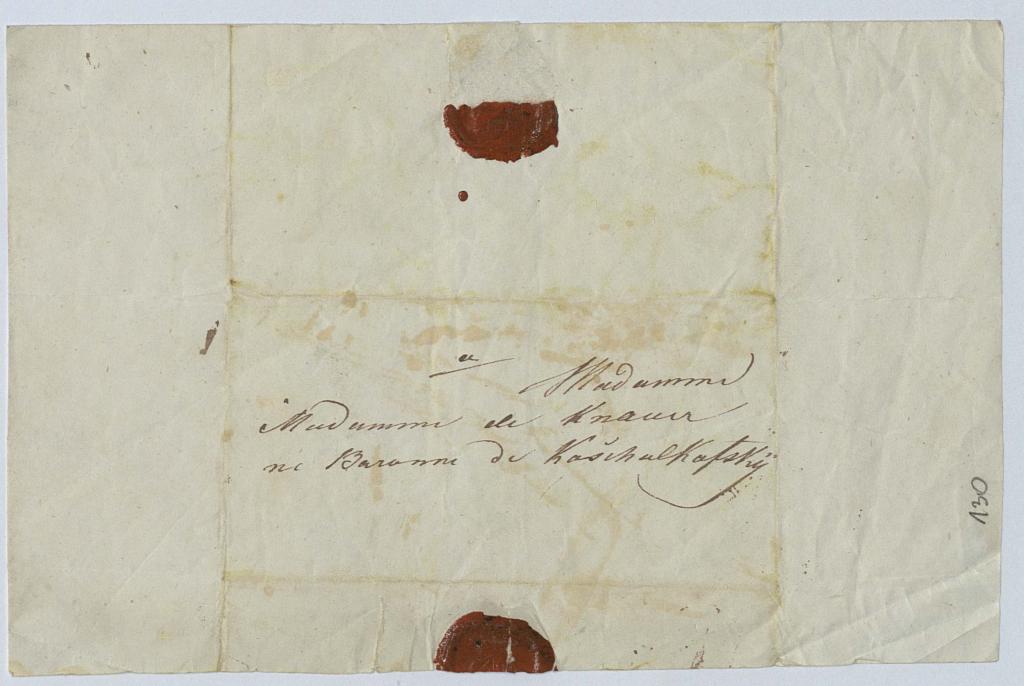 a Madamme
Madamme de Knauer
ne Baronne de Koschalkofsky
130